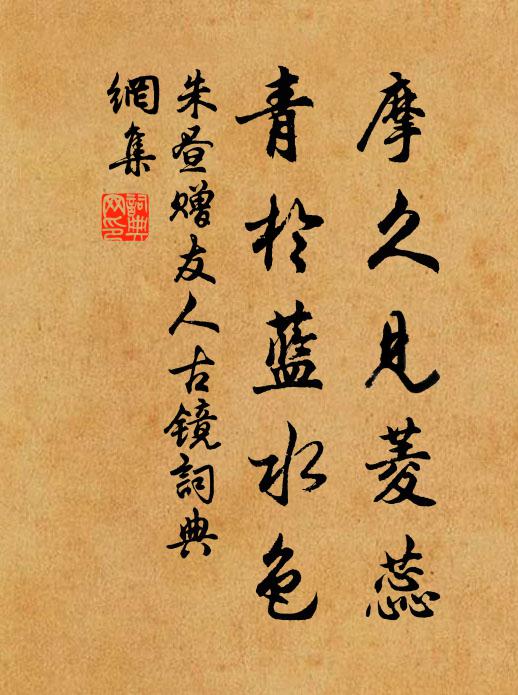 摩久見菱蕊
青於藍水色
朱晝赠友人古镜詞典
網集
詞典
网印